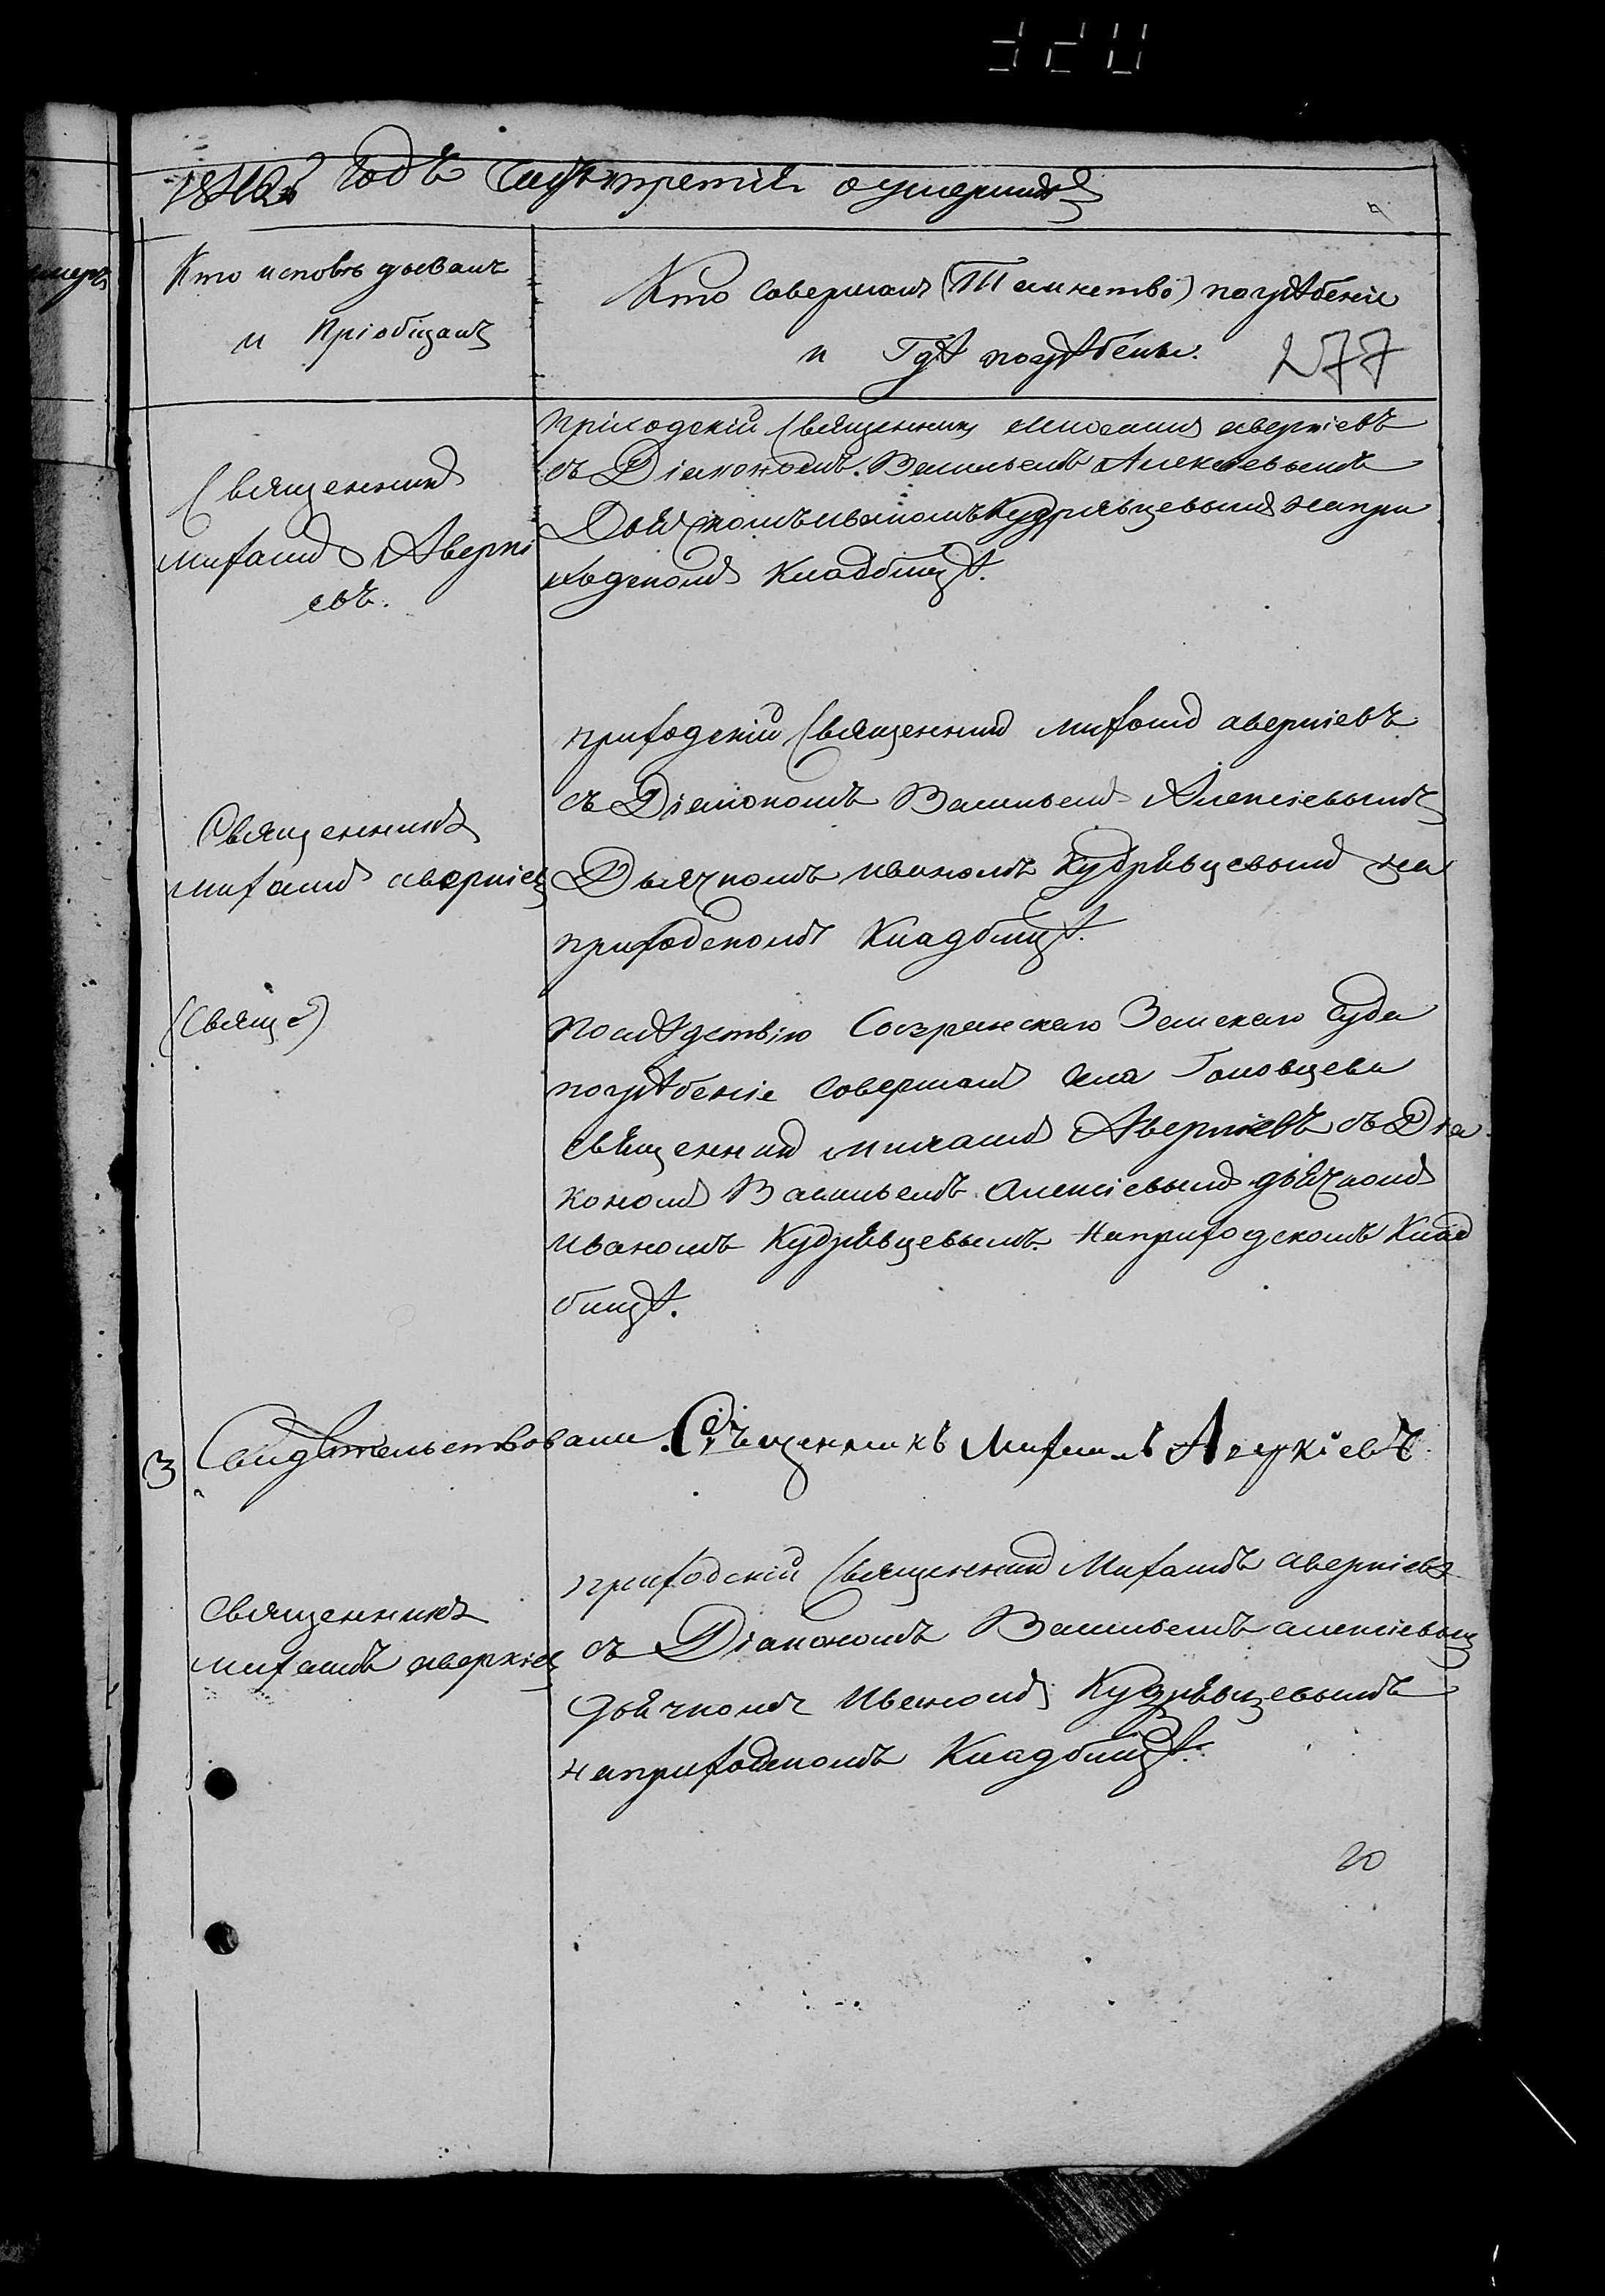 Годъ Часть третія о умершихъ
Кто исповѣдывалъ
и Пріобщалъ
Кто Совершалъ (Таинство) погрѣбеніе
и Гдѣ погрѣбены.
277
Священникъ
Михаилъ Аверкі
евъ.
приходскій Священникъ Михаилъ аверкіевъ
съ Діакономъ Васильемъ Алексѣевымъ
Дьячкомъ иваномъ Кудрявцевымъ на при
ходскомъ Кладбищѣ.
Священникъ
михаилъ аверкіевъ
приходскій Священникъ михаилъ аверкіевъ
съ Діакономъ Васильемъ Алексіевымъ
Дьячкомъ иваномъ Кудрявцевымъ на
приходскомъ Кладбищѣ.
(Свяще)
По слѣдствію Сызранскаго Земскаго Суда
погрѣбеніе Совершалъ Села
священникъ михаилъ Аверкіевъ съ Диа
кономъ Васильемъ Алексіевымъ дьячкомъ
Иваномъ Кудрявцевымъ. На приходскомъ Клад
бищѣ.
3 Свидѣтельствовали. Священникъ Михаилъ Аверкіевъ.
Священникъ
михаилъ аверкіевъ
приходскій Священникъ Михаилъ аверкіевъ
съ Діакономъ Васильемъ алексіевымъ
дьячкомъ Иваномъ Кудрявцевымъ
на приходскомъ Кладбищѣ.
20